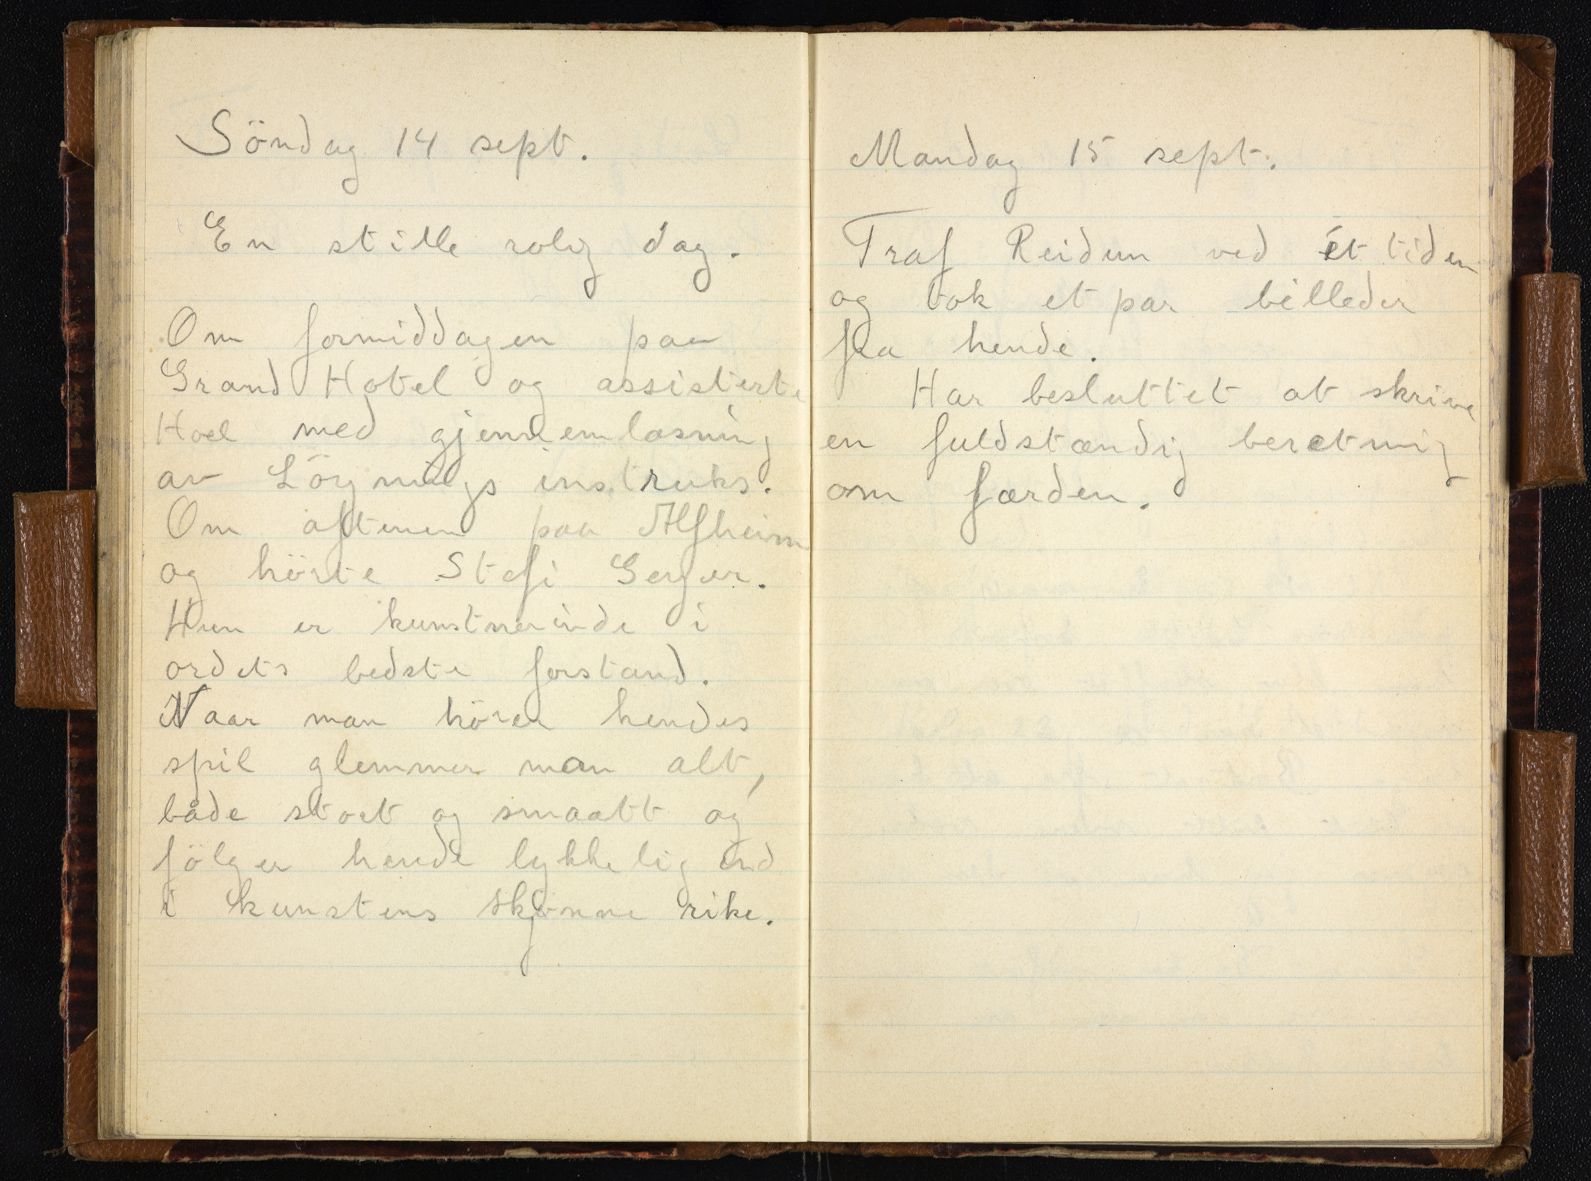 Söndag 14 sept.
En stille rolig dag.
Om formiddagen paa
Grand Hotel og assisterte
Hoel med gjennemlæsning
av instruks.
Om aftenen paa Alfheim
og hörte Stefi Geyer.
Hun er kunstnerinde i
ordets bedste forstand.
Naar man hörer hendes
spil glemmer man alt,
både stort og smaatt og
fölger hende lykkelig ind
i kunstens skjönne rike.
Mandag 15 sept.
Traf Reidun ved ét tiden
og tok et par billeder
fra hende.
Har besluttet at skrive
en fuldstændig beretnig
om færden.